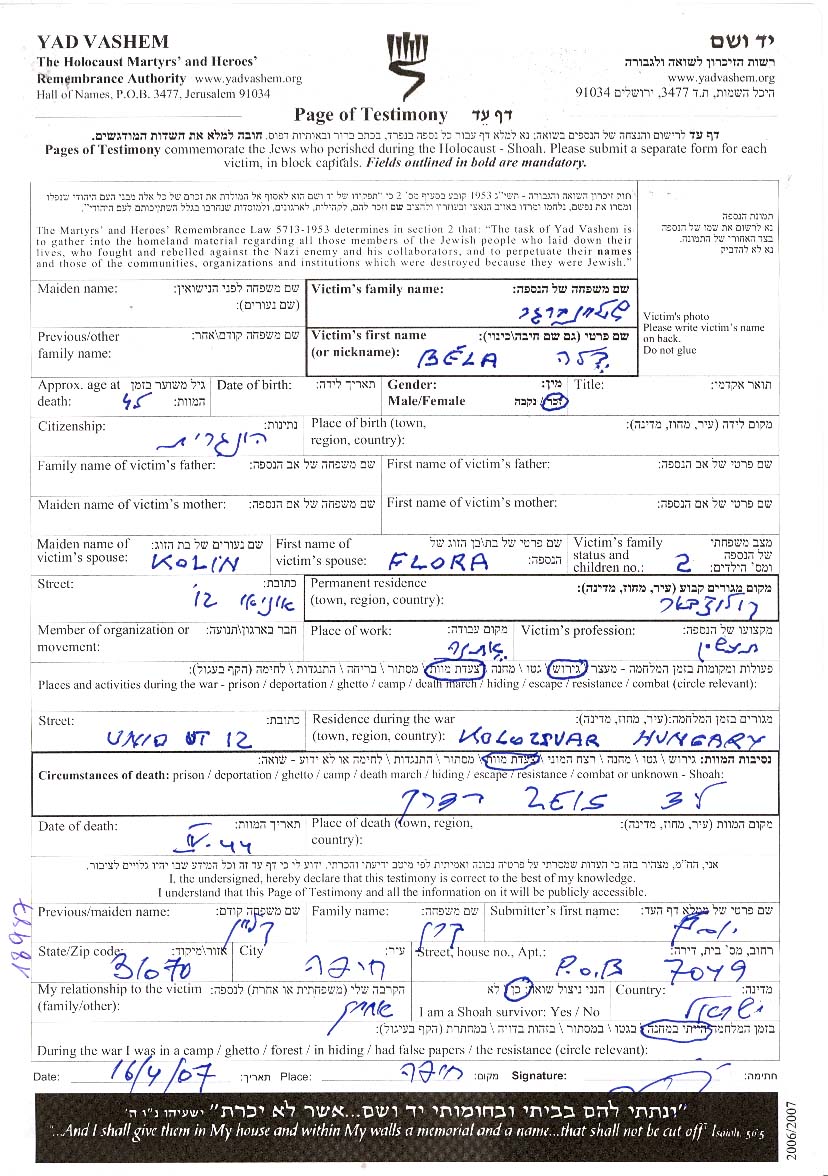 YAD VASHEM
יד ושם
The Holocaust Martyrs' and Heroes'
רשות הזיכרון לשואה ולגבורה
Remembrance Authority www.yadvashem.org
www.yadvashem.org
Hall of Names, P.O.B. 3477, Jerusalem 91034
היכל השמות, ת.ד 3477, ירושלים 91034
Page of Testimony דף עד
דף עד לרישום והנצחה של הנספים בשואה; נא למלא דף עבור כל נספה בנפרד, בכתב ברור ובאותיות דפוס. חובה למלא את השדות המודגשים.
Pages of Testimony commemorate the Jews who perished during the Holocaust - Shoah. Please submit a separate form for each
victim, in block capitals. Fields outlined in bold are mandatory.
חוק זיכרון השואה והגבורה - תשי"ג 1953 קובע בסעיף מס' 2 כי "תפקידו של יד ושם הוא לאסוף אל המולדת את זכרם של כל אלה מבני העם היהודי שנפלו
ומסרו את נפשם, נלחמו ומרדו באויב הנאצי ובעוזריו ולהציב שם וזכר להם, לקהילות, לארגונים, ולמוסדות שנחרבו בגלל השתייכותם לעם היהודי".
The Martyrs' and Heroes' Remembrance Law 5713-1953 determines in section 2 that: "The task of Yad Vashem is
to gather into the homeland material regarding all those members of the Jewish people who laid down their
lives, who fought and rebelled against the Nazi enemy and his collaborators, and to perpetuate their names
and those of the communities, organizations and institutions which were destroyed because they were Jewish."
תמונת הנספה
נא לרשום את שמו של הנספה
בצד האחורי של התמונה.
נא לא להדביק
Victim's photo
Please write victim's name
on back.
Do not glue
Maiden name: שם משפחה לפני הנישואין:
(שם נעורים):
Victim's family name: שם משפחה של הנספה:
Previous/other שם משפחה קודם\אחר:
family name:
Victim's first name שם פרטי (גם שם חיבה\כינוי):
(or nickname): BÉLA בלה
Approx. age at גיל משוער בזמן
death: 45 המוות:
Date of birth: תאריך לידה:
Gender: מין:
Male/Female זכר\ נקבה
Title: תואר אקדמי:
Citizenship: נתינות:
הונגרית
Place of birth (town, מקום לידה (עיר, מחוז, מדינה):
region, country):
Family name of victim's father: שם משפחה של אב הנספה:
First name of victim's father: שם פרטי של אב הנספה:
Maiden name of victim's mother: שם משפחה של אם הנספה:
First name of victim's mother: שם פרטי של אם הנספה:
Maiden name of שם נעורים של בת הזוג:
victim's spouse: KOLIN
First name of שם פרטי של בת\בן הזוג של
victim's spouse: FLORA הנספה:
Victim's family מצב משפחתי
status and של הנספה
children no.: 2 ומס' הילדים:
Street: כתובת:
Permanent residence מקום מגורים קבוע (עיר, מחוז, מדינה):
(town, region, country):
Member of organization or חבר בארגון\תנועה:
movement:
Place of work: מקום עבודה:
Victim's profession: מקצועו של הנספה:
פעולות ומקומות בזמן המלחמה - מעצר \ גירוש \ גטו \ מחנה \ צעדת מוות \ מסתור \ בריחה \ התנגדות \ לחימה (הקף בעיגול):
Places and activities during the war - prison / deportation / ghetto / camp / death march / hiding / escape / resistance / combat (circle relevant):
Street: כתובת:
UNIO UT 12
Residence during the war מגורים בזמן המלחמה:(עיר, מחוז, מדינה):
(town, region, country): KOLOZSVAR HUNGARY
נסיבות המוות: גירוש \ גטו \ מחנה \ רצח המוני \ צעדת מוות \ מסתור \ התנגדות \ לחימה או לא ידוע - שואה:
Circumstances of death: prison / deportation / ghetto / camp / death march / hiding / escape / resistance / combat or unknown - Shoah:
Date of death: תאריך המוות:
Place of death (town, region, מקום המוות (עיר, מחוז, מדינה):
country):
אני, הח"מ, מצהיר בזה כי העדות שמסרתי על פרטיה נכונה ואמיתית לפי מיטב ידיעתי והכרתי. ידוע לי כי דף עד זה וכל המידע שבו יהיו גלויים לציבור.
I, the undersigned, hereby declare that this testimony is correct to the best of my knowledge.
I understand that this Page of Testimony and all the information on it will be publicly accessible.
Previous/maiden name: שם משפחה קודם:
Family name: שם משפחה:
Submitter's first name: שם פרטי של ממלא דף העד:
State/Zip code: אזור\מיקוד:
31070
City עיר:
חיפה
Street, house no., Apt.: רחוב, מס' בית, דירה:
P.O.B 7049
My relationship to the victim הקרבה שלי (משפחתית או אחרת) לנספה:
(family/other):
הנני ניצול שואה: כן \ לא
I am a Shoah survivor: Yes / No
Country: מדינה:
ישראל
בזמן המלחמה הייתי במחנה\ בגטו \ במסתור \ בזהות בדויה \ במחתרת (הקף בעיגול):
During the war I was in a camp / ghetto / forest / in hiding / had false papers / the resistance (circle relevant):
Date: 16/4/07 תאריך: Place: חיפה מקום: Signature: חתימה:
"ונתתי להם בביתי ובחומותי יד ושם...אשר לא יכרת" ישעיהו נ"ו ה'
"...And I shall give them in My house and within My walls a memorial and a name...that shall not be cut off" Isaiah, 56:5
2006/2007